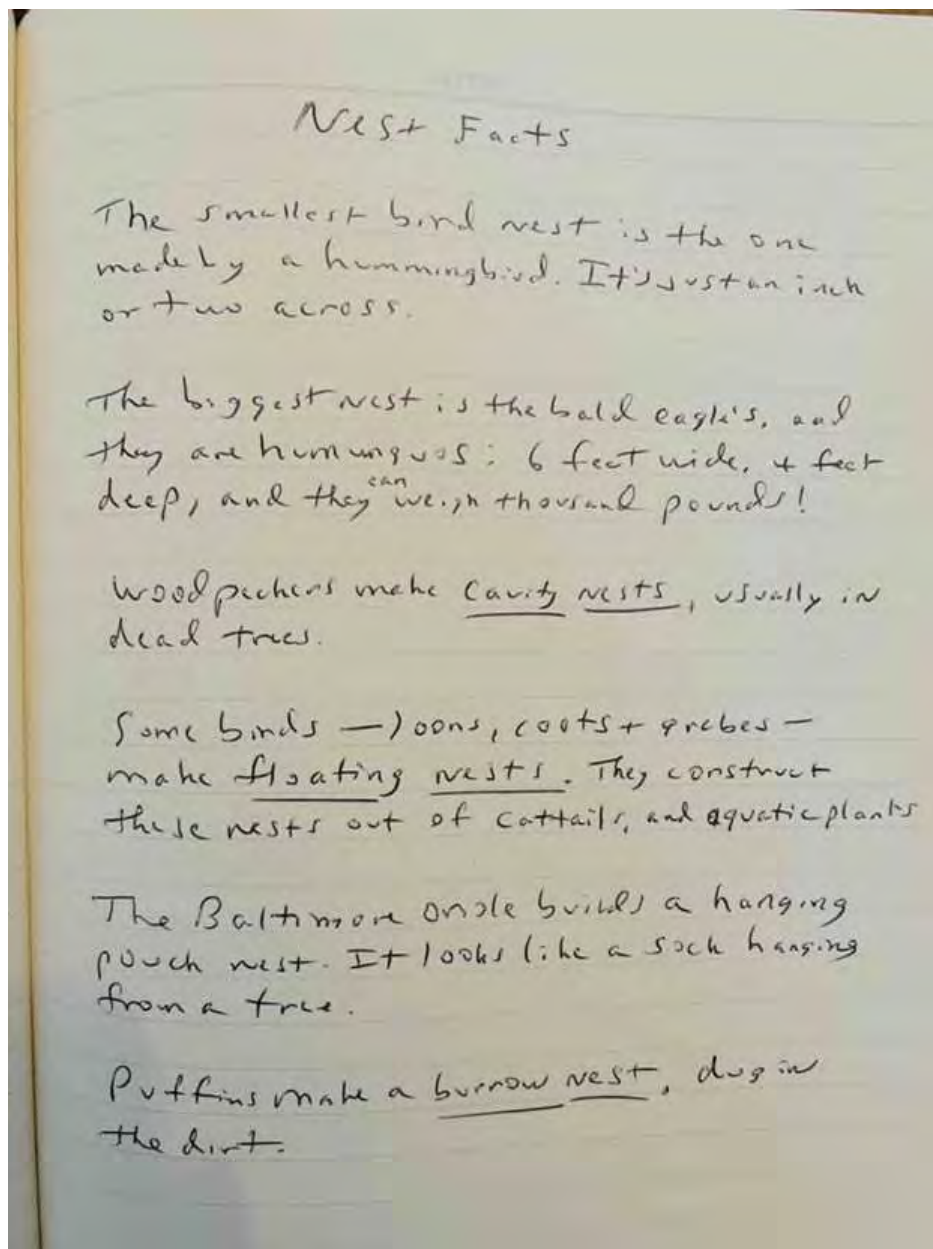 Nest Facts
The smallest bird nest is the one
made by a hummingbird. It's just an inch
or two across.
The biggest nest is the bald eagle's, and
they are humunguos: 6 feet wide, 4 feet
deep, and they can weigh thousand pounds!
Woodpeckers make cavity nests, usually in
dead trees.
Some birds — loons, coots + grebes —
make floating nests. They construct
these nests out of cattails, and aquatic plants
The Baltimore oriole builds a hanging
pouch nest. It looks like a sock hanging
from a tree.
Puffins make a burrow nest, dug in
the dirt.